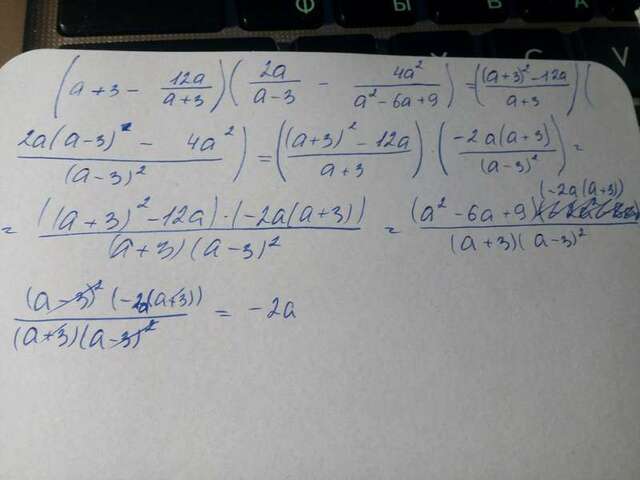 (a+3 - 12a/(a+3)) (2a/(a-3) - 4a²/(a²-6a+9)) = ((a+3)²-12a)/(a+3)) (
(2a(a-3) - 4a²)/(a-3)²) = (((a+3)²-12a)/(a+3)) · (-2a(a+3)/(a-3)²) =
= ((a+3)²-12a)·(-2a(a+3))/((a+3)(a-3)²) = (a²-6a+9)(-2a(a+3))/((a+3)(a-3)²)
(a-3)²(-2a(a+3))/((a+3)(a-3)²) = -2a